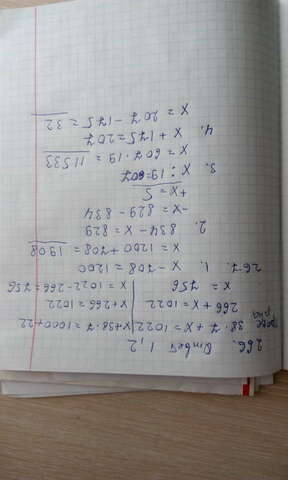 266. Ответ 1,2
38·7+x=1022 x+38·7=1000+22
266+x=1022 x+266=1022
x=756 x=1022-266=756
267. 1. x-708=1200
x=1200+708=1908
2. 834-x=829
-x=829-834
+x=5
3. x:19=607
x=607·19=11533
4. x+175=207
x=207-175=32